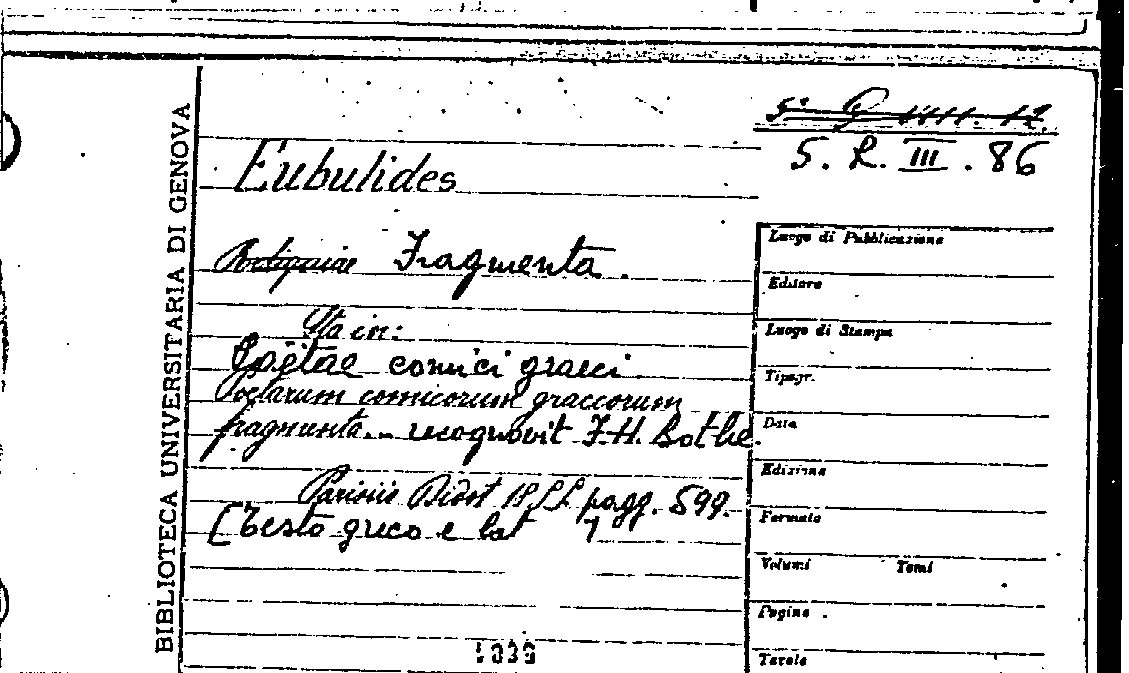 BIBLIOTECA UNIVERSITARIA DI GENOVA
5. R. III. 86
Eubulides
Fragmenta.
Sta in:
Poëtae comici graeci
Poetarum comicorum graecorum
fragmenta... recognovit F. H. Bothe.
Parisiis Didot pagg. 599.
[Testo greco e lat
Luogo di Pubblicazione
Editore
Luogo di Stampa
Tipogr.
Data
Edizione
Formato
Volumi Tomi
Pagine
Tavole